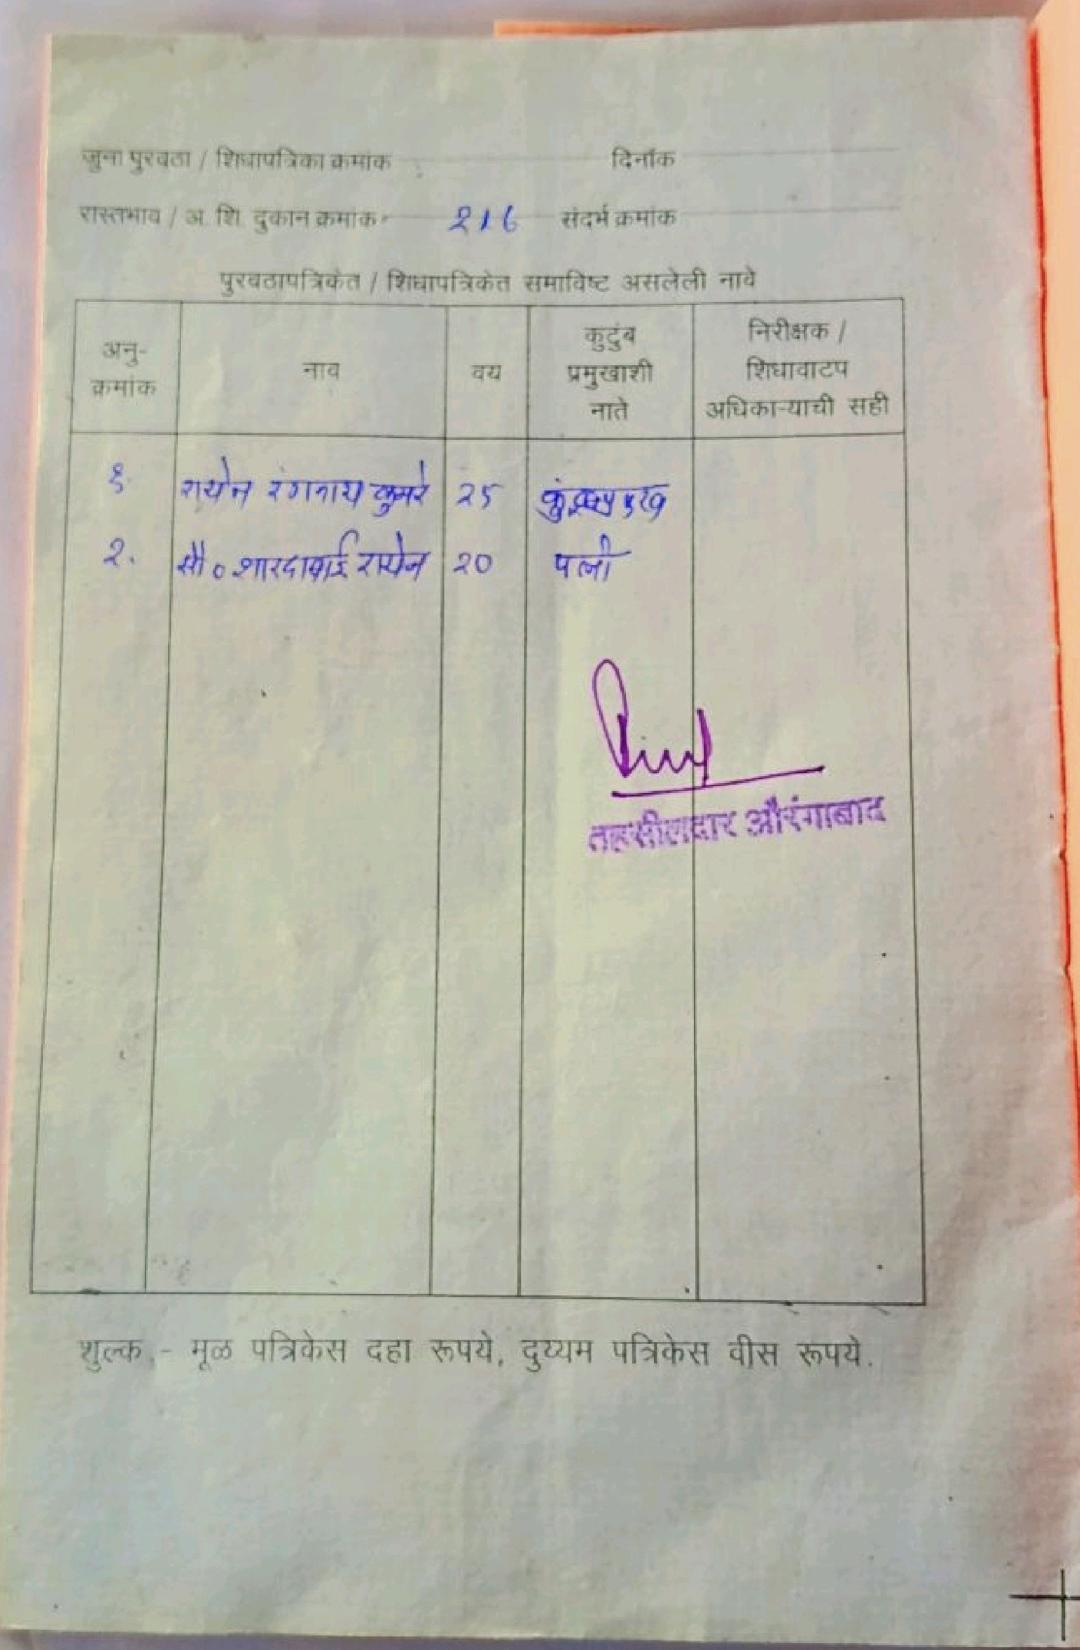 जुना पुरवठा / शिधापत्रिका क्रमांक दिनाँक
रास्तभाव / अ. शि. दुकान क्रमांक 216 संदर्भ क्रमांक
पुरवठापत्रिकेत / शिधापत्रिकेत समाविष्ट असलेली नावे
अनु-क्रमांक नाव वय कुटुंब प्रमुखाशी नाते निरीक्षक / शिधावाटप अधिकाऱ्याची सही
१. रंगनाथ कुमरे २५
२. सौ० शारदाबाई २० पत्नी
तहसीलदार औरंगाबाद
शुल्क,- मूळ पत्रिकेस दहा रूपये, दुय्यम पत्रिकेस वीस रूपये.